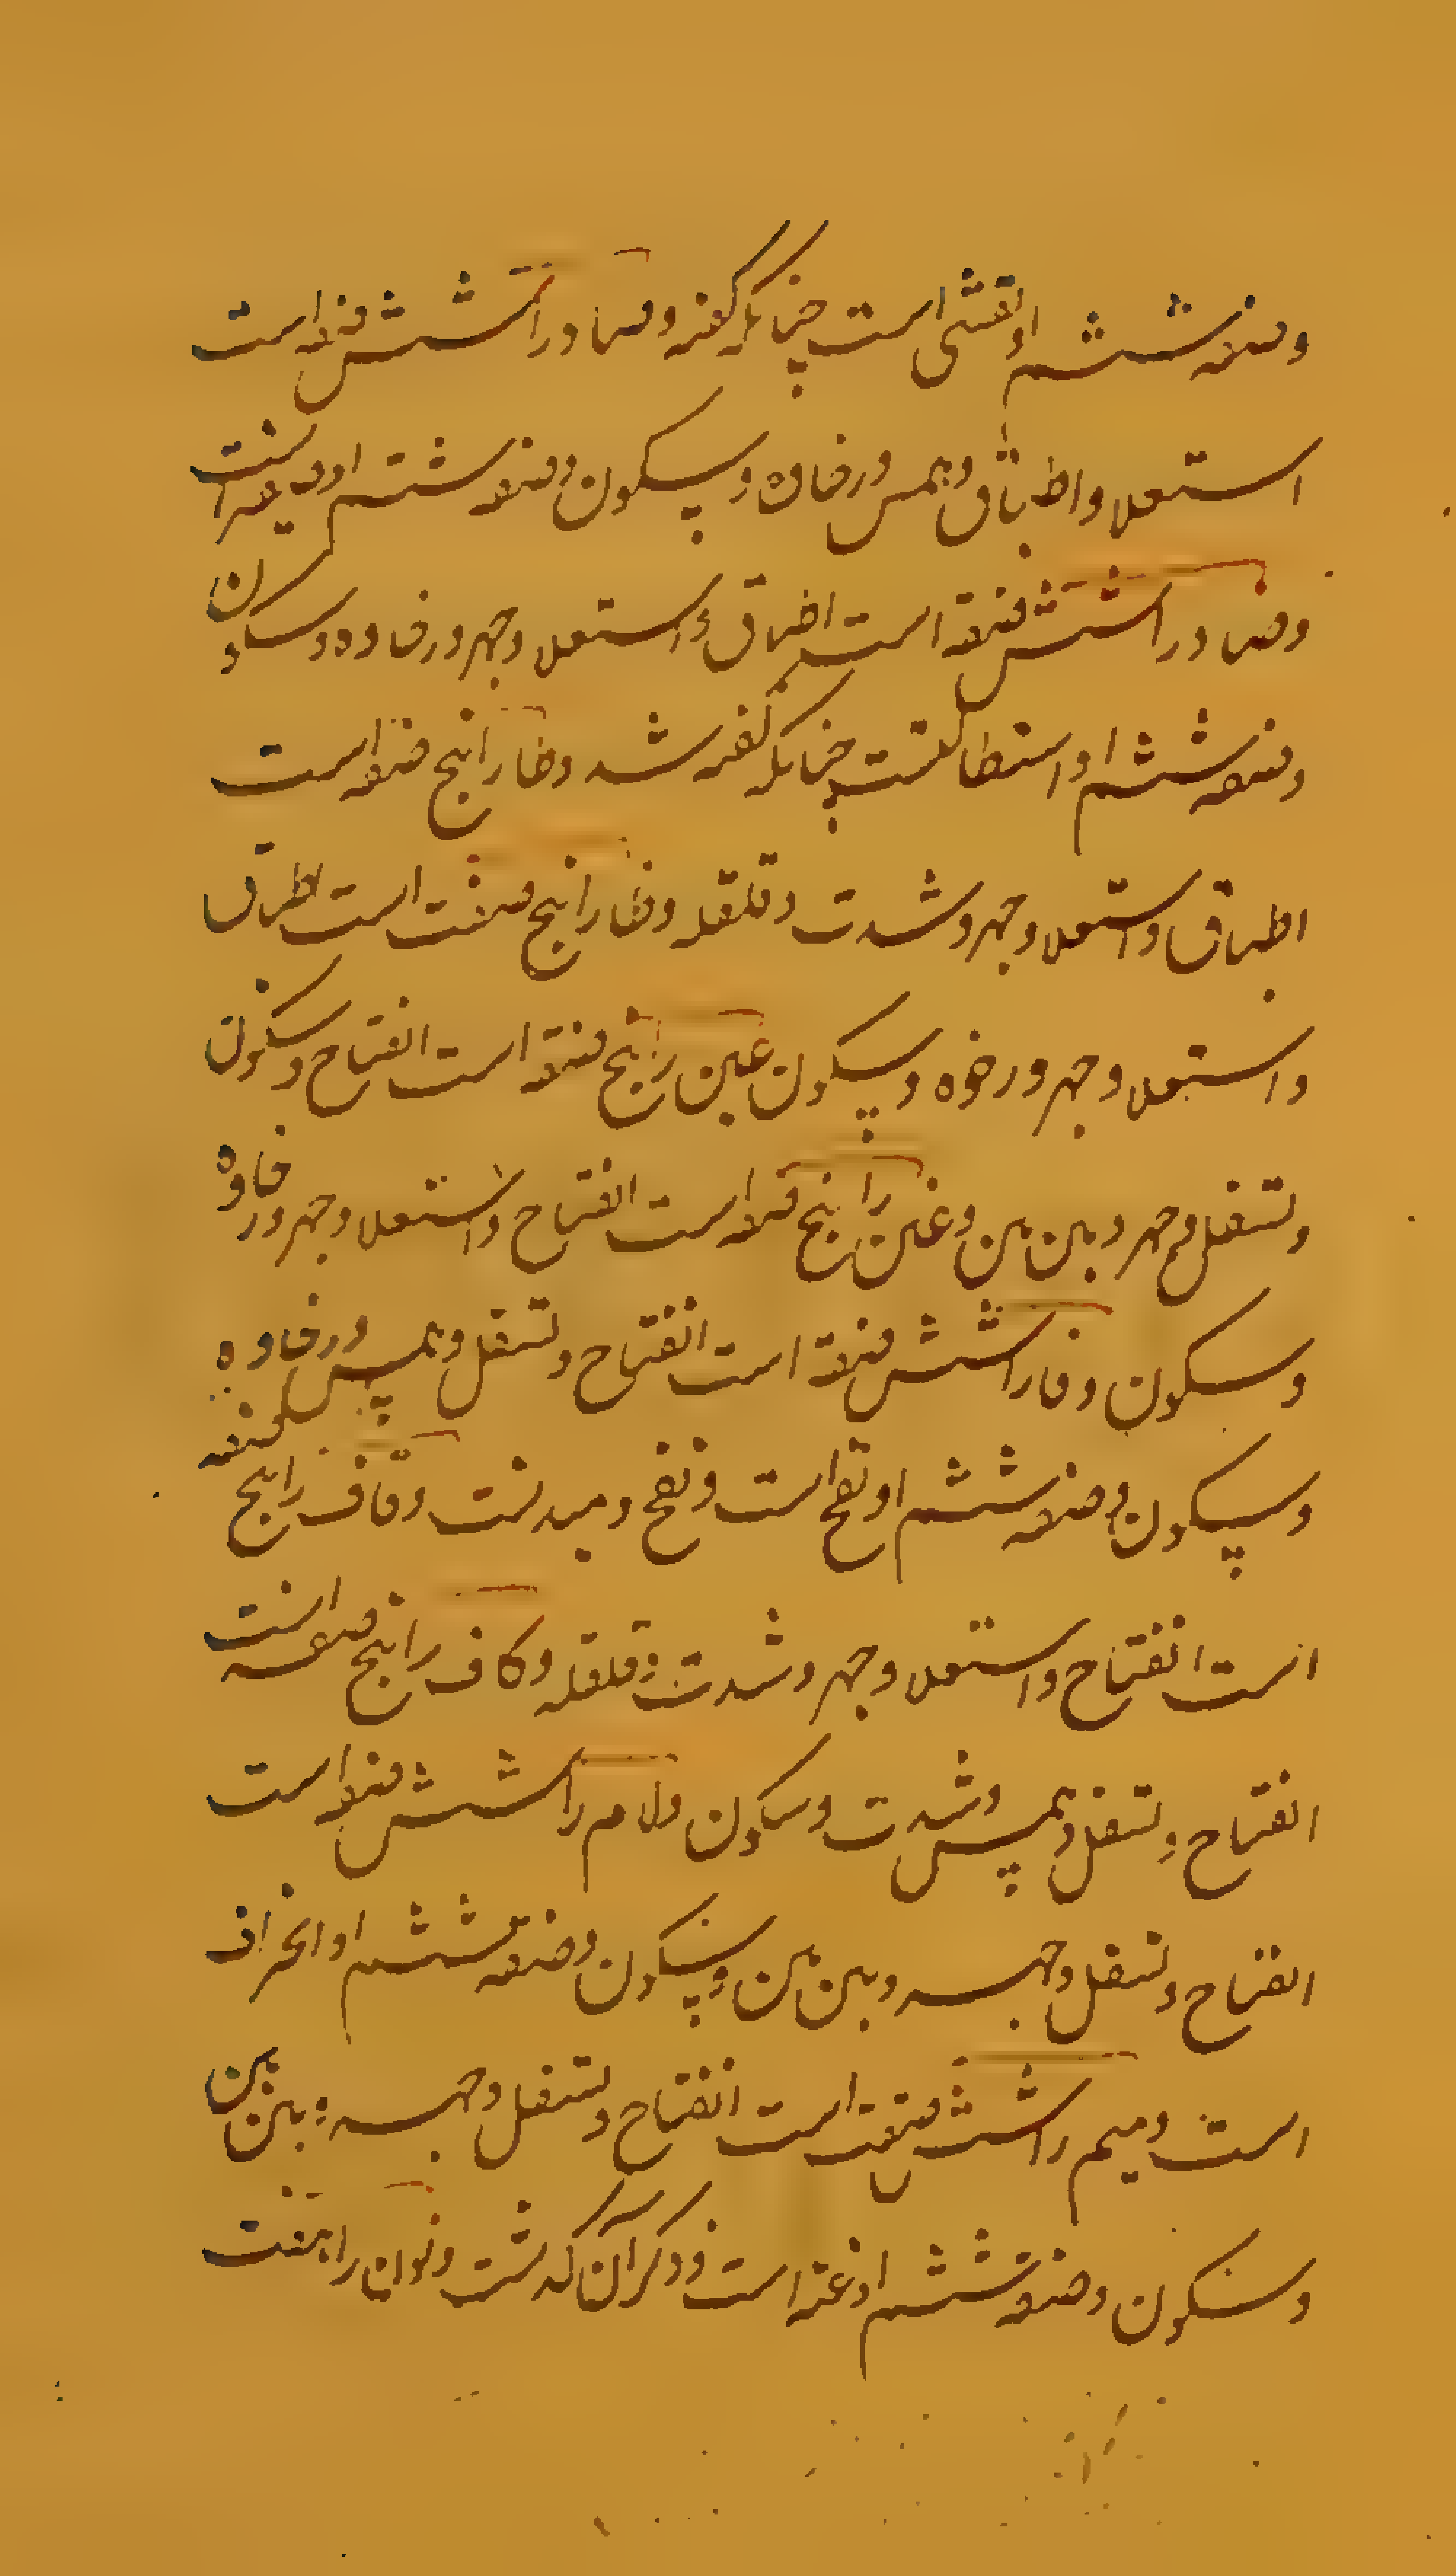 وصفة ششم او تفشی است چنانکه گفته و صاد را شش صفة است
استعلا و اطباق و همس و رخاوه و سکون و صفة ششم او صفیر است
وضاد را شش صفة است اطباق و استعلا و جهر و رخاوه و سکون
وصفة ششم او استطالتست چنانکه گفته شد و طا را پنج صفة است
اطباق و استعلا و جهر و شدت و قلقله و ظا را پنج صفت است اطباق
و استعلا و جهر و رخوه و سکون عین را پنج صفة است انفتاح و سکون
وتسفل و جهر و بین بین و غین را پنج صفة است انفتاح و استعلا و جهر و رخاوه
وسکون و فا را شش صفة است انفتاح و تسفل و همس و رخاوه
وسکون و صفة ششم او نفخ است و نفخ دمیدنست و قاف را پنج صفة
است انفتاح و استعلا و جهر و شدت و قلقله و کاف را پنج صفة است
انفتاح و تسفل و همس و شدت و سکون ولام را شش صفة است
انفتاح و تسفل و جهر و بین بین و سکون و صفة ششم او انحراف
است و میم را شش صفت است انفتاح و تسفل و جهر و بین بین
وسکون و صفة ششم او غنه است و ذکر آن گذشت و نون را هفت